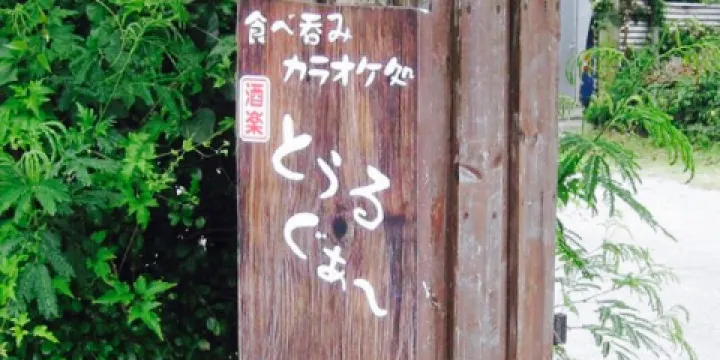 食べ呑み
カラオケ処
酒楽
とぅる
ぐぁ〜